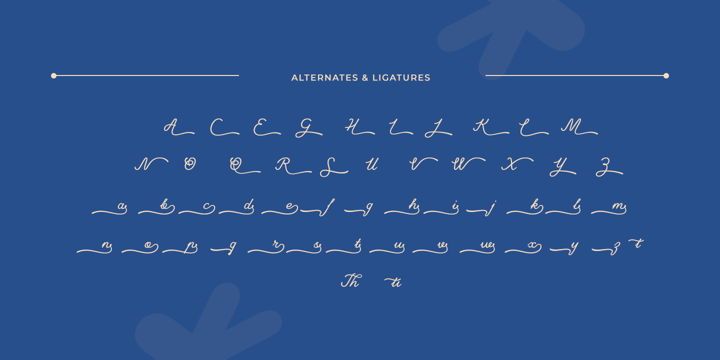 ALTERNATES & LIGATURES
A C E G H I J K L M
N O Q R S U V W X Y Z
a b c d e f g h i j k l m
n o p q r s t u v w x y z t
Th tt